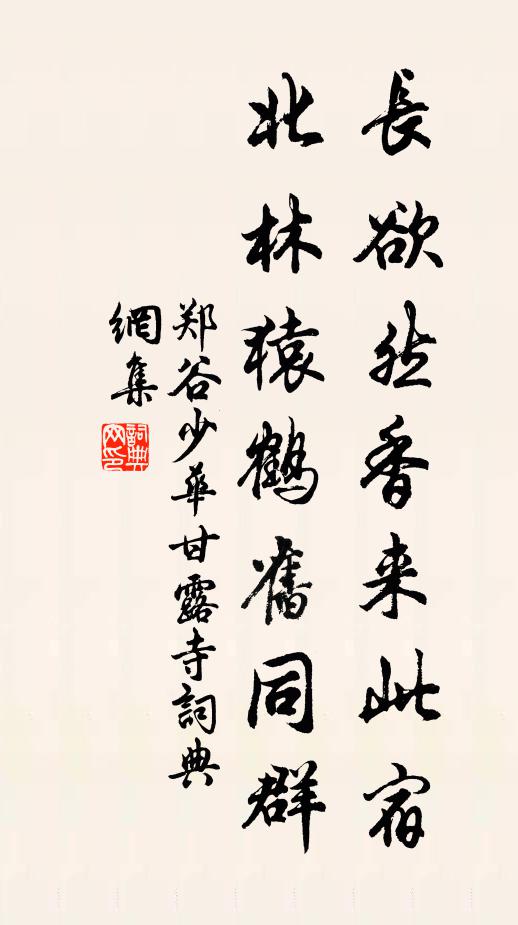 長欲然香来此宿
北林猿鶴舊同群
郑谷少華甘露寺詞典
網集
詞典
网印